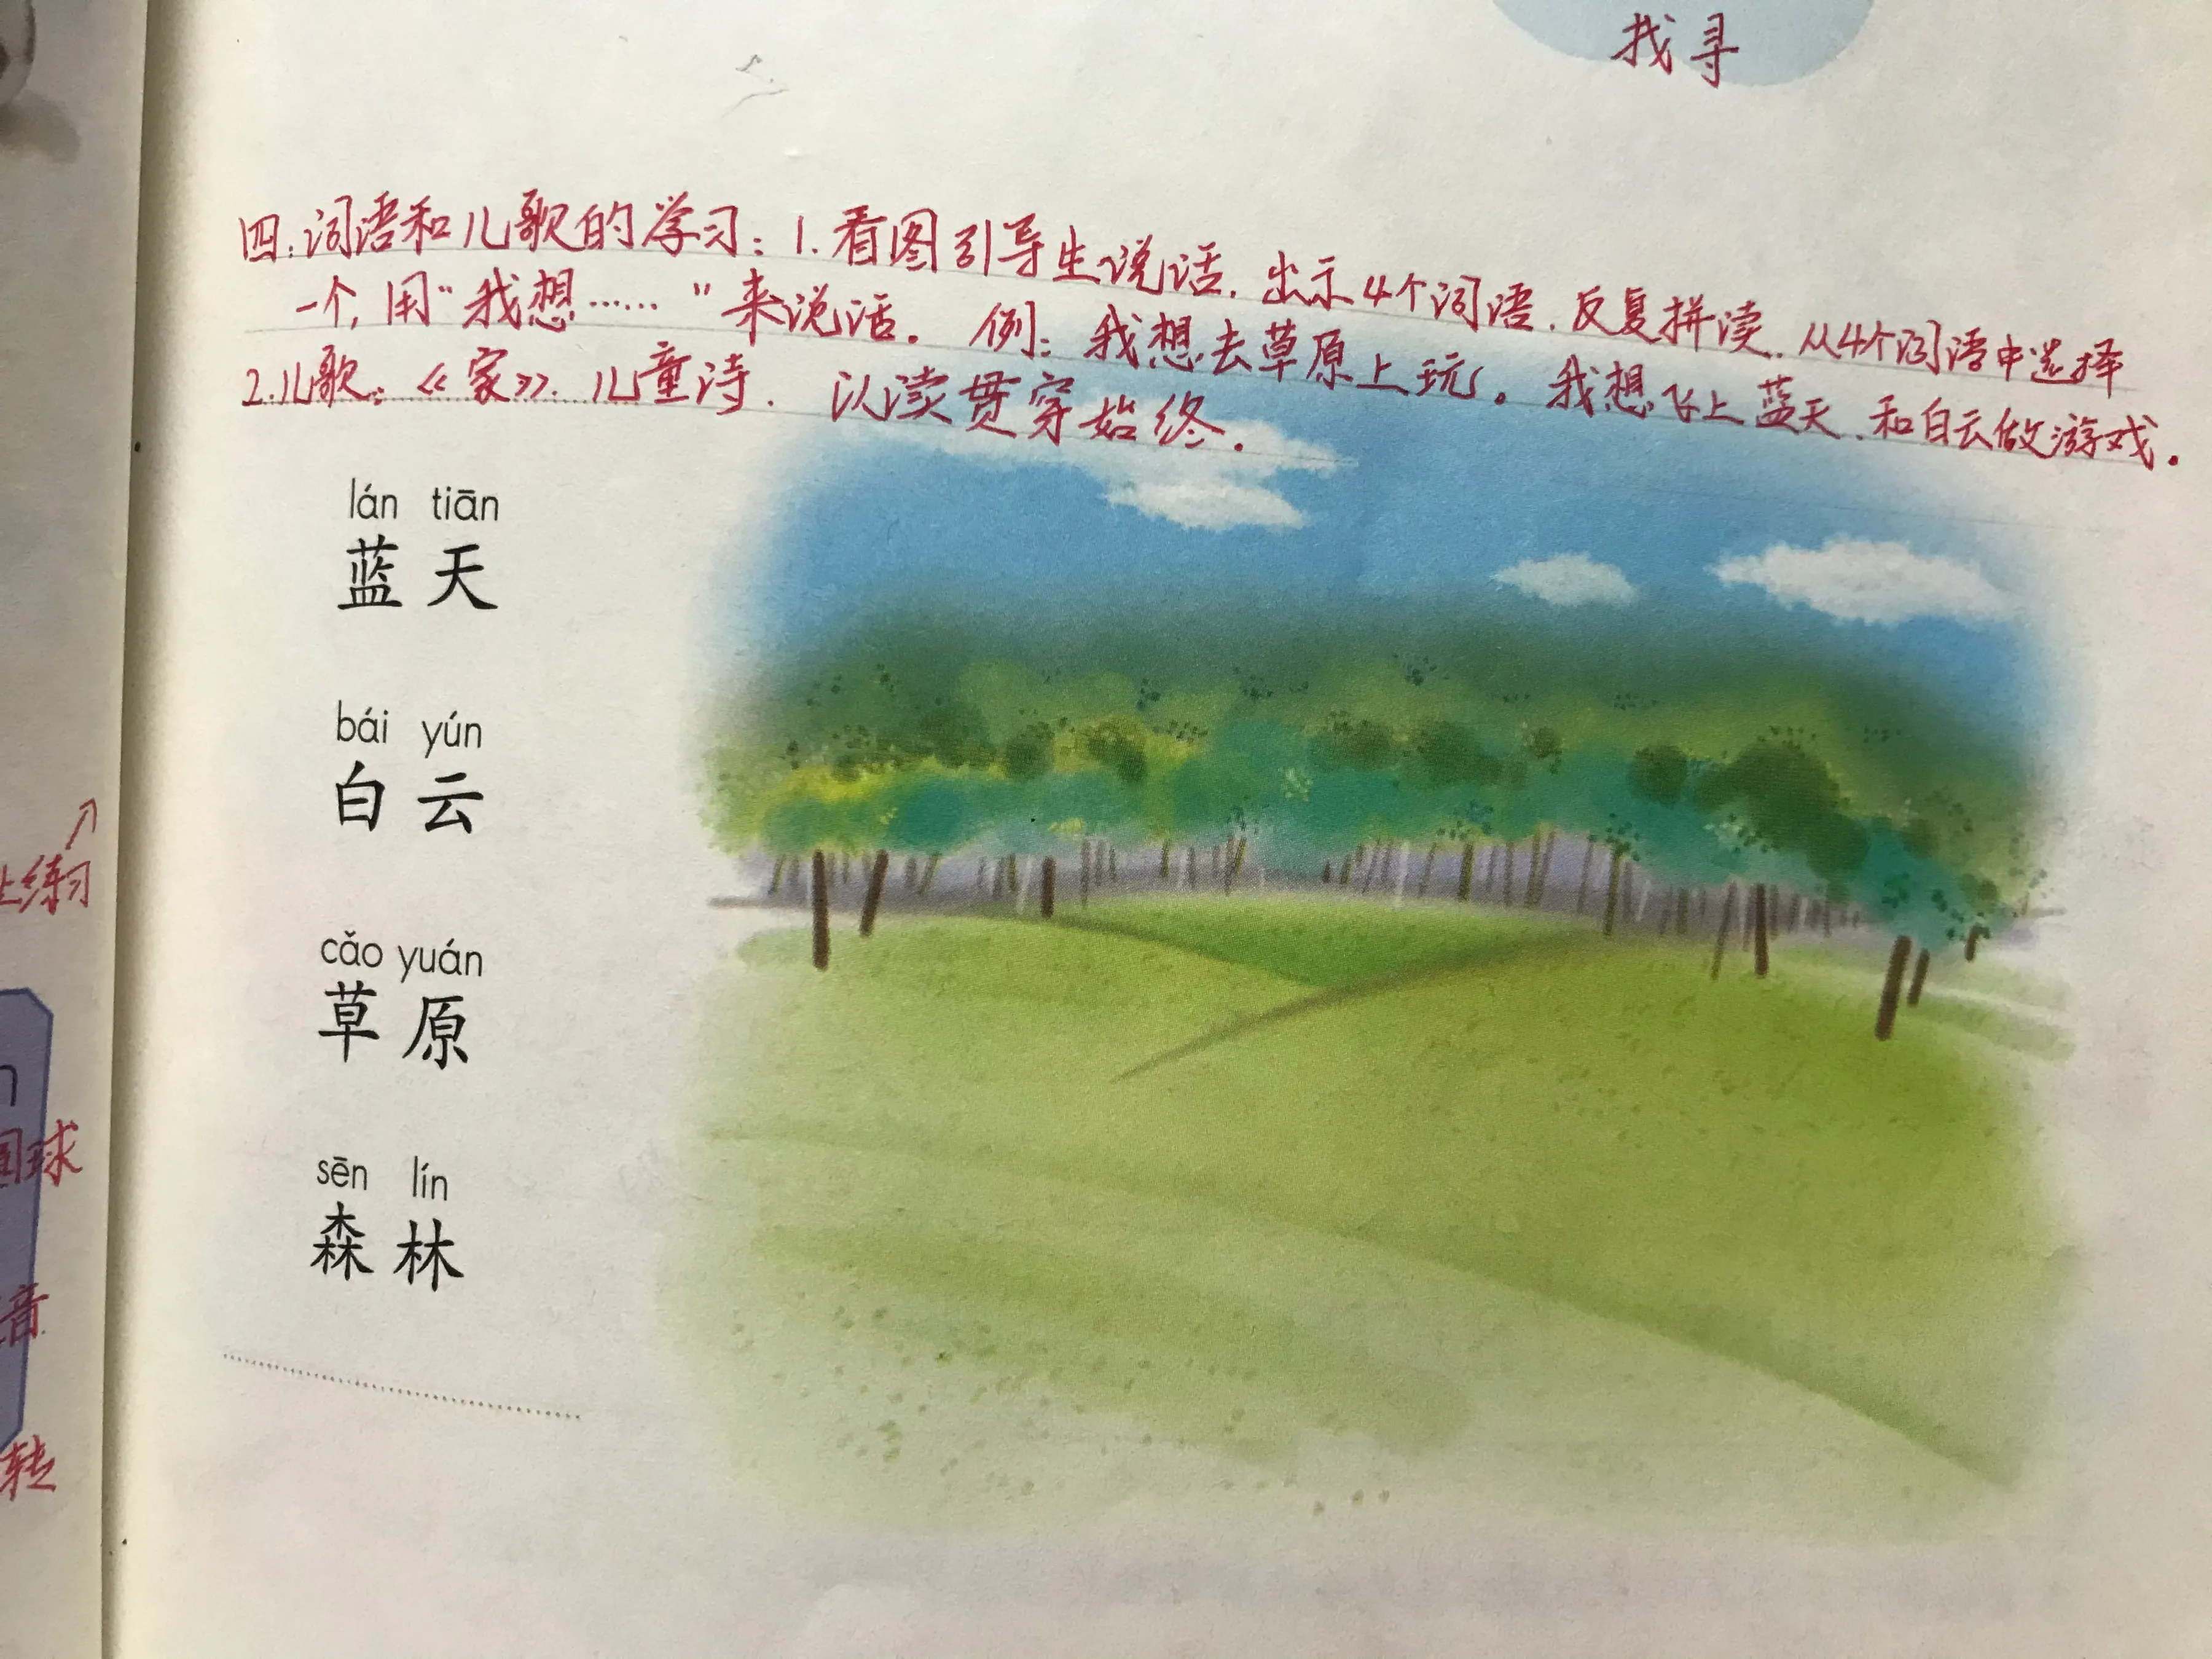 找寻
四:词语和儿歌的学习:1.看图引导生说话.出示4个词语.反复拼读.从4个词语中选择
一个,用“我想……”来说话。例:我想去草原上玩。我想飞上蓝天.和白云做游戏。
2.儿歌:《家》.儿童诗.以读贯穿始终.
lán tiān
蓝天
bái yún
白云
cǎo yuán
草原
sēn lín
森林
上练习
球
音
转